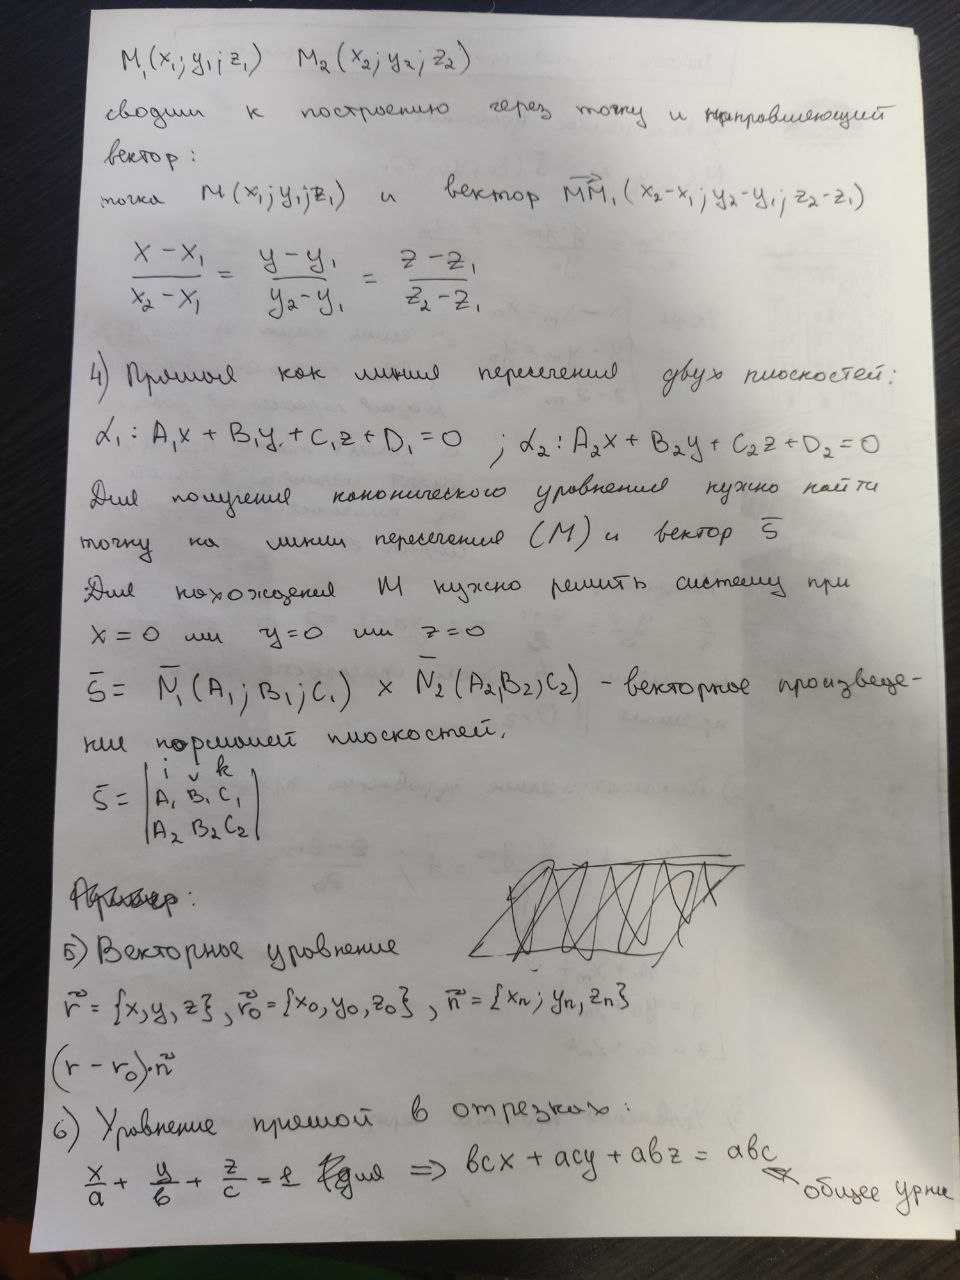 M₁(x₁; y₁; z₁) M₂(x₂; y₂; z₂)
сводим к построению через точку и направляющий
вектор:
точка M(x₁; y₁; z₁) и вектор MM₁(x₂-x₁; y₂-y₁; z₂-z₁)
(x-x₁)/(x₂-x₁) = (y-y₁)/(y₂-y₁) = (z-z₁)/(z₂-z₁)
4) Прямая как линия пересечения двух плоскостей:
α₁: A₁x + B₁y + C₁z + D₁ = 0 ; α₂: A₂x + B₂y + C₂z + D₂ = 0
Для получения канонического уравнения нужно найти
точку на линии пересечения (M) и вектор S̄
Для нахождения M нужно решить систему при
x = 0 или y = 0 или z = 0
S̄ = N̄₁(A₁; B₁; C₁) × N̄₂(A₂, B₂, C₂) - векторное произведе-
ние нормалей плоскостей.
S̄ = | i j k |
| A₁ B₁ C₁ |
| A₂ B₂ C₂ |
5) Векторное уравнение
r⃗ = {x, y, z}, r⃗₀ = {x₀, y₀, z₀}, n⃗ = {xₙ; yₙ, zₙ}
(r - r₀)·n⃗
6) Уравнение прямой в отрезках:
x/a + y/b + z/c = 1 для => bcx + acy + abz = abc
общее